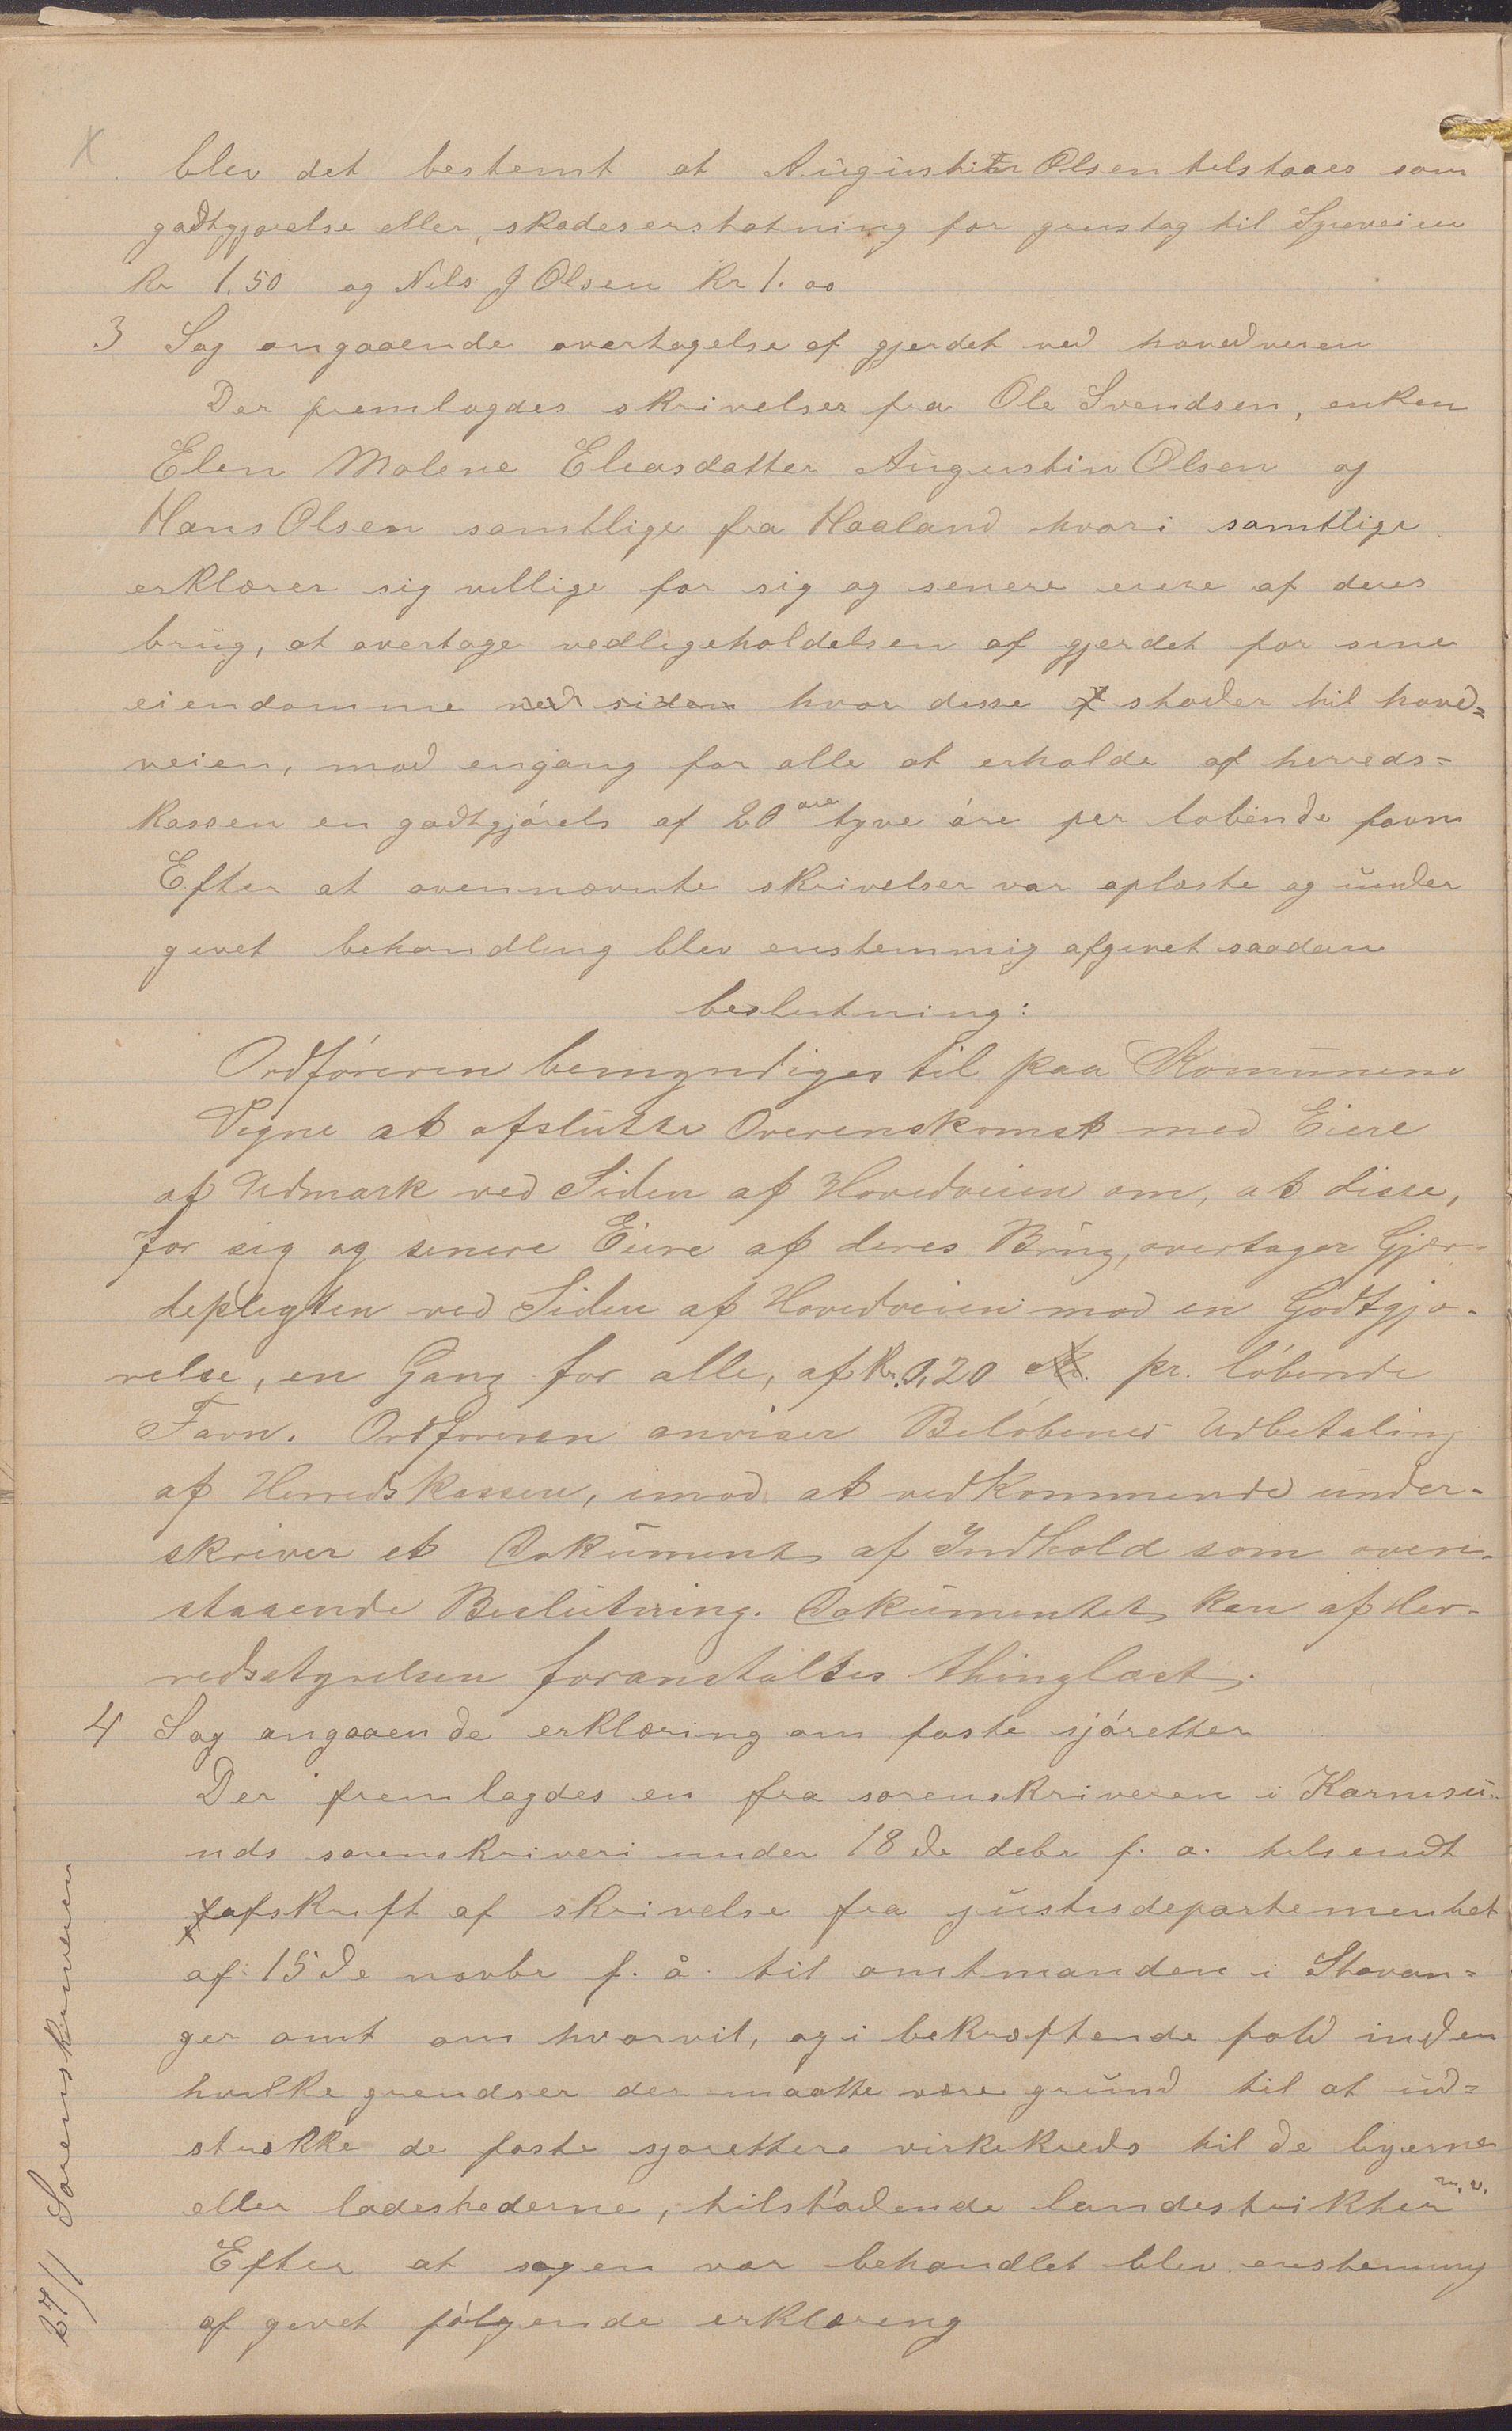 blev det bestemt at Augustin Olsen tilstaaes som
godtgjørelse eller, skadeserstatning for grustag til Syreveien
kr 1.50 og Nils J Olsen kr 1.00
3 Sag angaaende overtagelse af gjerdet ved hovedveien
Der fremlagdes skrivelser fra Ole Svendsen, enken
Elen Malene Eliasdatter Augustin Olsen og
Hans Olsen samtlige fra Haaland hvori samtlige
erklærer sig villige for sig og senere eiere af deres
brug, at overtage vedligeholdelsen af gjerdet for sine
eiendomme ved siden hvor desse støder til hoved=
veien, mod engang for alle at erholde af herreds=
kassen en godtgjórels af 20 øre tyve óre per løbende favn
Efter at ovennævnte skrivelser var oplæste og under
givet behandling blev enstemmig afgivet saadan
beslutning:
Ordfóreren bemyndiges til paa Kommunens
Vegne at afslutte Overenskomst med Eiere
af Udmark ved Siden af Hovedveien om, at disse,
for sig og senere Eiere af deres Brug, overtager Gjær-
depligten ved Siden af Hovedveien mod en Godtgjø-
relse, en Gang for alle, af Kr. 0,20 Kr. pr. lóbende
Favn. Ordføreren anviser Belóbenes Udbetaling
af Herredskassen, imod at vedkommende under-
skriver et Dokument af Indhold som oven-
staaende Beslutning. Dokumentet kan af Her-
redsstyrelsen foranstaltes thinglæst.
4 Sag angaaende erklæring om faste sjóretter
Der fremlagdes en fra sorenskriveren i Karmsu-
nds sorenskriveri under 18de debr f. a. tilsendt
afskrift af skrivelse fra justisdepartementet
af 15de novbr f. å. til amtmanden i Stavan=
ger amt om hvorvit, og i bekræftende fald inden
hvilke grendser der maatte være grund til at ud=
strække de faste sjøretters virkekreds til de byerne
eller ladestederne, tilstødende landestrikter m.v.
Efter at sagen var behandlet blev enstemmig
af givet fólgende erklæring
27/1 Sorenskriveren